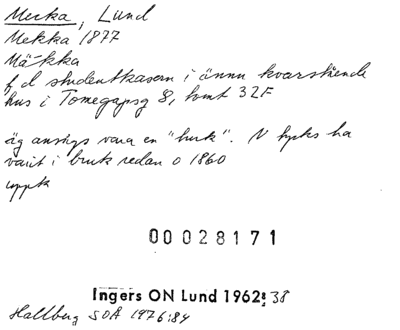 Mecka, Lund
Mekka 1877
Mäkka
f d studentkasern i ännu kvarstående
hus i Tomegapsg 8, tomt 32F
äg ansågs vara en "hurk". N tycks ha
varit i bruk redan o 1860
uppk
00028171
Ingers ON Lund 1962: 38
Hallberg SOÅ 1976:84